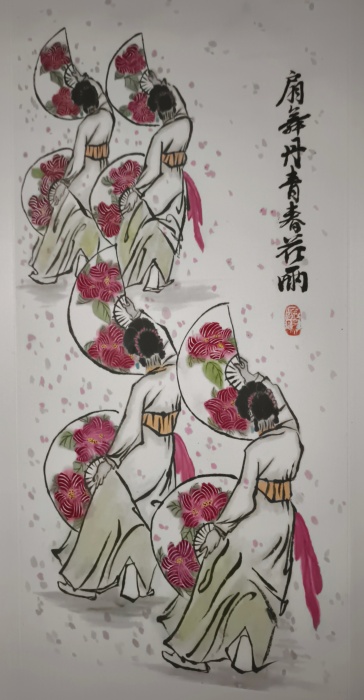 扇舞丹青春花雨